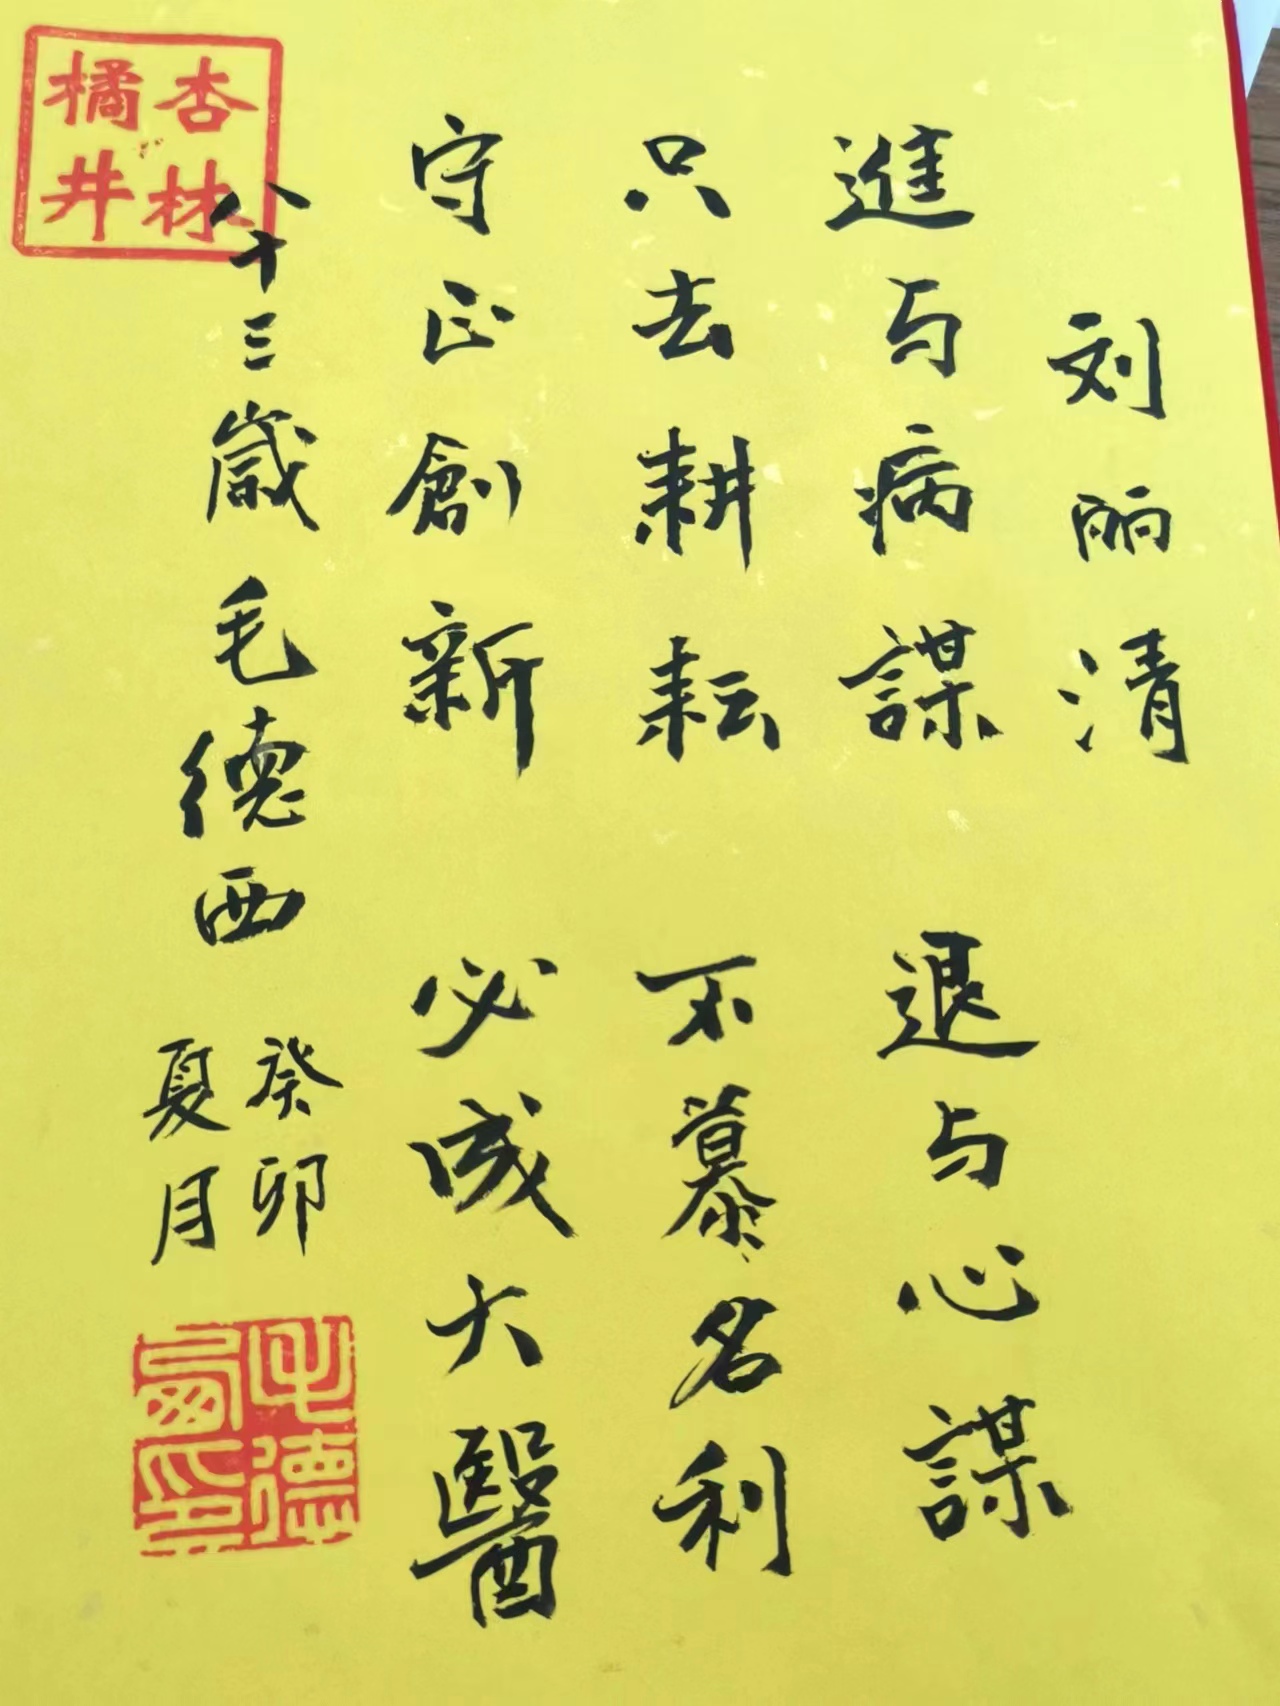 刘丽清
進与病謀 退与心謀
只去耕耘 不慕名利
守正創新 必成大醫
八十三歲毛德西 癸卯
夏月
杏林
橘井
毛德
西印